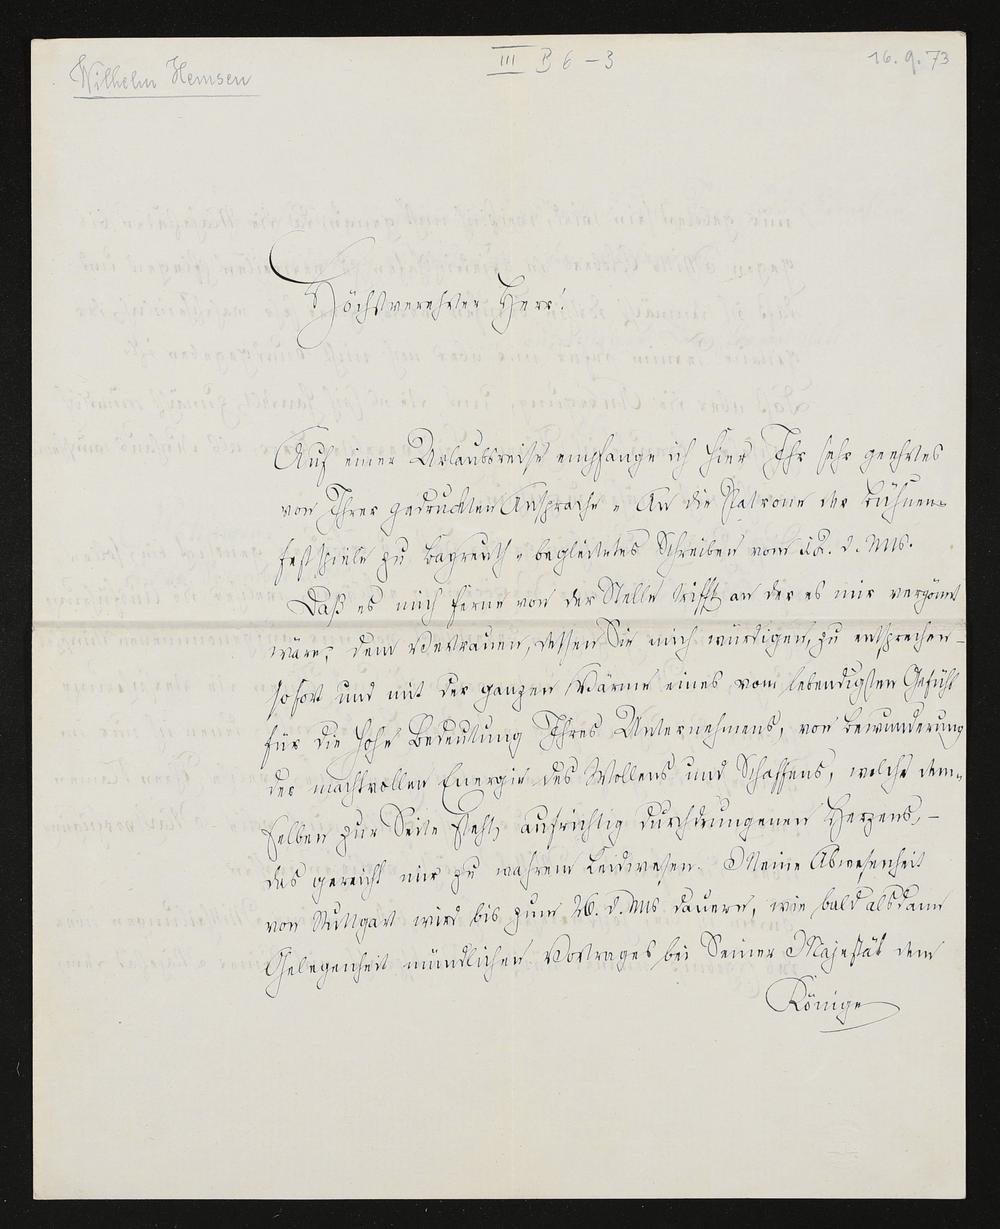 Wilhelm Hemsen
III B 6 – 3
16.9.73
Höchstverehrter Herr!
Auf einer Urlaubsreise empfange ich hier Ihr sehr geehrtes
von Ihrer gedruckten Ansprache „An die Patrone der Bühnen-
festspiele zu Bayreuth“ begleitetes Schreiben vom 12. d. Mts.
Daß es mich ferne von der Stelle trifft an der es mir vergönnt
wäre, dem Vertrauen, dessen Sie mich würdigen, zu entsprechen –
sofort und mit der ganzen Wärme eines vom lebendigsten Gefühl
für die hohe Bedeutung Ihres Unternehmens, von Bewunderung
der machtvollen Energie des Wollens und Schaffens, welche dem-
selben zur Seite steht, aufrichtig durchdrungenen Herzens, –
das gereicht mir zu wahrem Leidwesen. Meine Abwesenheit
von Stuttgart wird bis zum 26. d. Mts dauern, wie bald alsdann
Gelegenheit mündlichen Vortrages bei Seiner Majestät dem
Könige